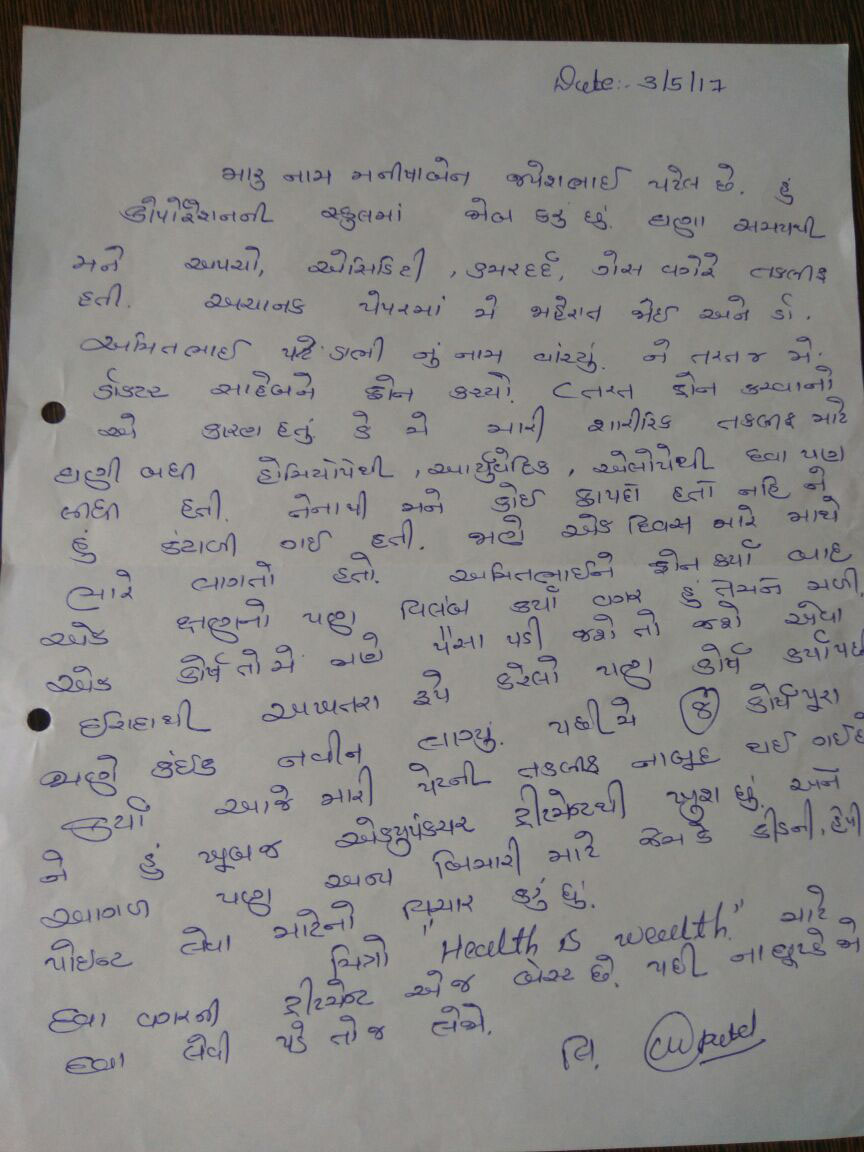 Date:- 3/5/17
મારૂ નામ મનીષાબેન જયેશભાઈ પટેલ છે. હું
કોર્પોરેશનની સ્કુલમાં જોબ કરૂં છું. ઘણા સમયથી
મને અપચો, એસિડિટી, કમરદર્દ, ગેસ વગેરે તકલીફ
હતી. અચાનક પેપરમાં મે જાહેરાત જોઈ અને ડૉ.
અમિતભાઈ પટેલ નું નામ વાંચ્યું. ને તરત જ મે.
ડૉકટર સાહેબને ફોન કર્યો. (તરત ફોન કરવાનો
એ કારણ હતું કે મે મારી શારીરિક તકલીફ માટે
ઘણી બધી હોમિયોપેથી, આર્યુવેદિક, એલોપેથી દવા પણ
લીધી હતી. તેનાથી મને કોઈ ફાયદો હતો નહિ ને
હું કંટાળી ગઈ હતી. જાણે એક દિવસ મારે માથે
ભારે લાગતો હતો. અમિતભાઈને ફોન કર્યા બાદ
એક ક્ષણનો પણ વિલંબ કર્યા વગર હું તેમને મળી.
એક કોર્ષ તો મે જાણે પૈસા પડી જશે તો જશે એવા
ઈરાદાથી અખતરા રૂપે કરેલો પણ કોર્ષ કર્યા પછી
જાણે કંઈક નવીન લાગ્યું. પછી મે કોર્ષ પૂરા
કર્યા આજે મારી પેટની તકલીફ નાબૂદ થઈ ગઈ છે
ને હું ખૂબ જ એક્યુપંકચર ટ્રીટમેન્ટથી ખુશ છું. અને
આગળ પણ અન્ય બિમારી માટે જેમ કે કીડની,
પોઇન્ટ લેવા માટેનો વિચાર કરૂં છું.
મિત્રો "Health is wealth" માટે
દવા વગરની ટ્રીટમેન્ટ એ જ બેસ્ટ છે. પછી ના છૂટકે એ
દવા લેવી પડે તો જ લેએ.
લિ. Patel